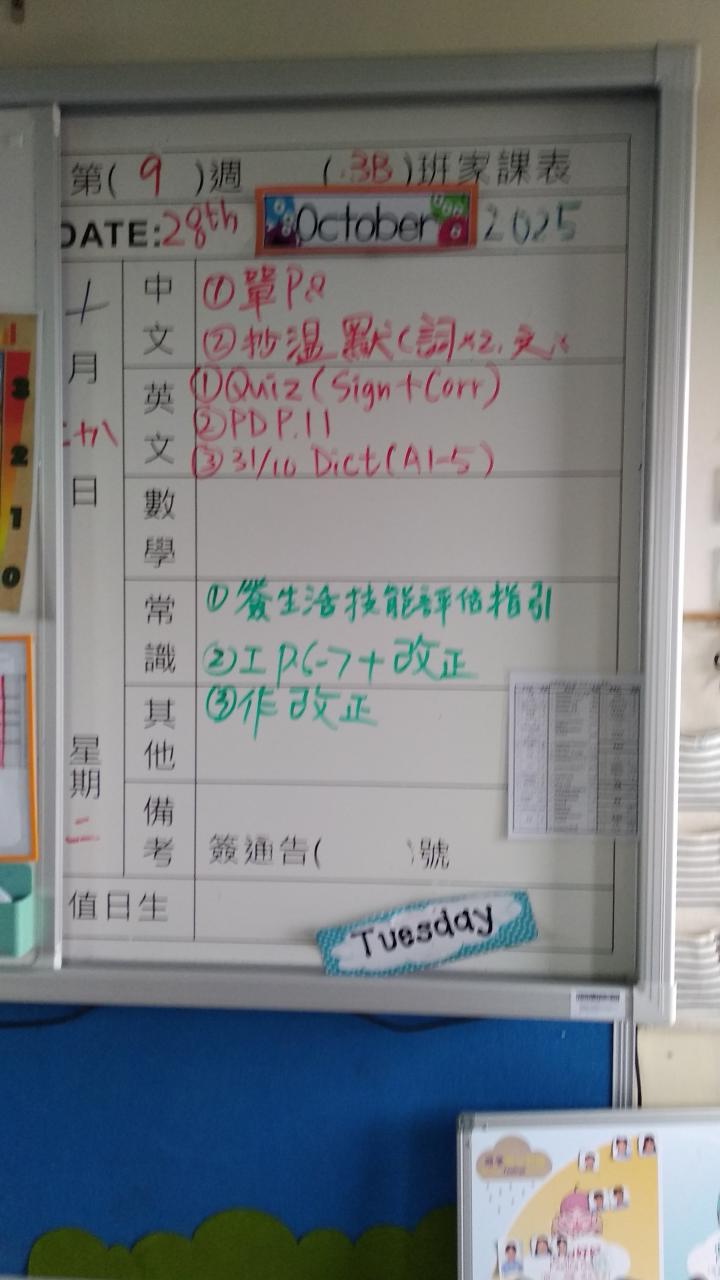 第( 9 )週 ( 3B )班家課表
DATE: 28th October 2025
十月二十八日
星期二
中文
①單P.8
②抄温默(詞x2,文x
英文
①Quiz (Sign+Corr)
②PD P.11
③31/10 Dict (A1-5)
數學
常識
①簽生活技能評估指引
②工P.6-7+改正
③作改正
其他
備考
簽通告( )號
值日生
Tuesday
3
2
1
0